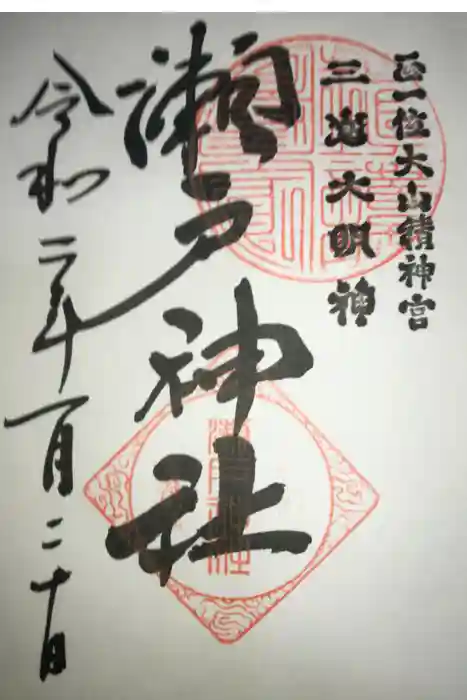 正一位大山積神宮
三嶋大明神
瀬戸神社
令和二年一月二十日